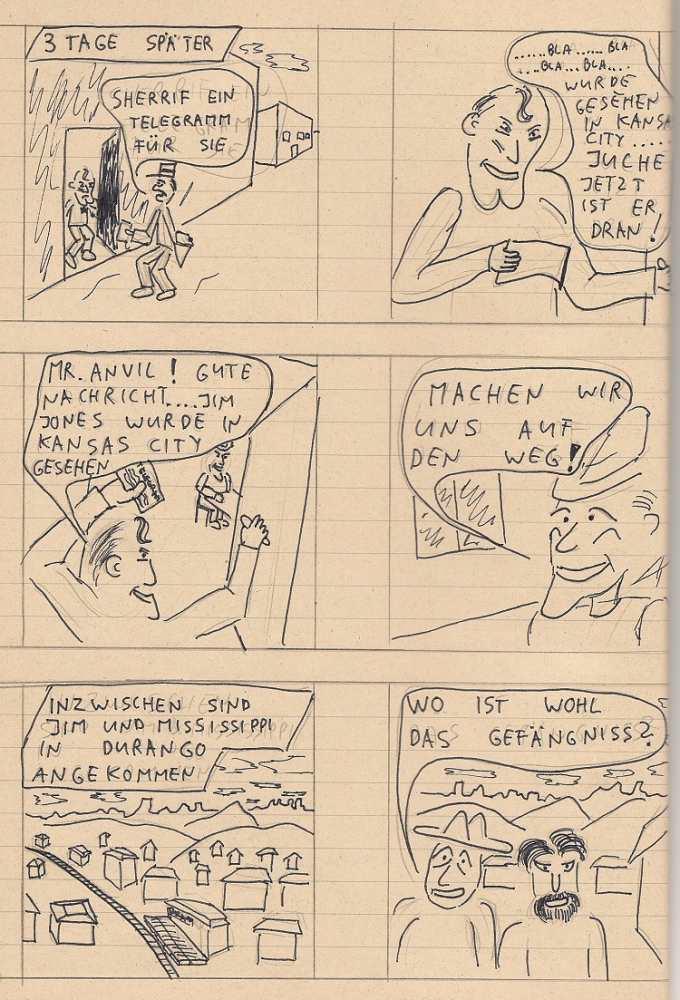 3 TAGE SPÄTER
SHERRIF EIN
TELEGRAMM
FÜR SIE
......BLA......BLA
....BLA...BLA....
WURDE
GESEHEN
IN KANSA
CITY.....
JUCHE
JETZT
IST ER
DRAN!
MR. ANVIL! GUTE
NACHRICHT....JIM
JONES WURDE IN
KANSAS CITY
GESEHEN
MACHEN WIR
UNS AUF
DEN WEG!
INZWISCHEN SIND
JIM UND MISSISSIPPI
IN DURANGO
ANGEKOMMEN
WO IST WOHL
DAS GEFÄNGNISS?